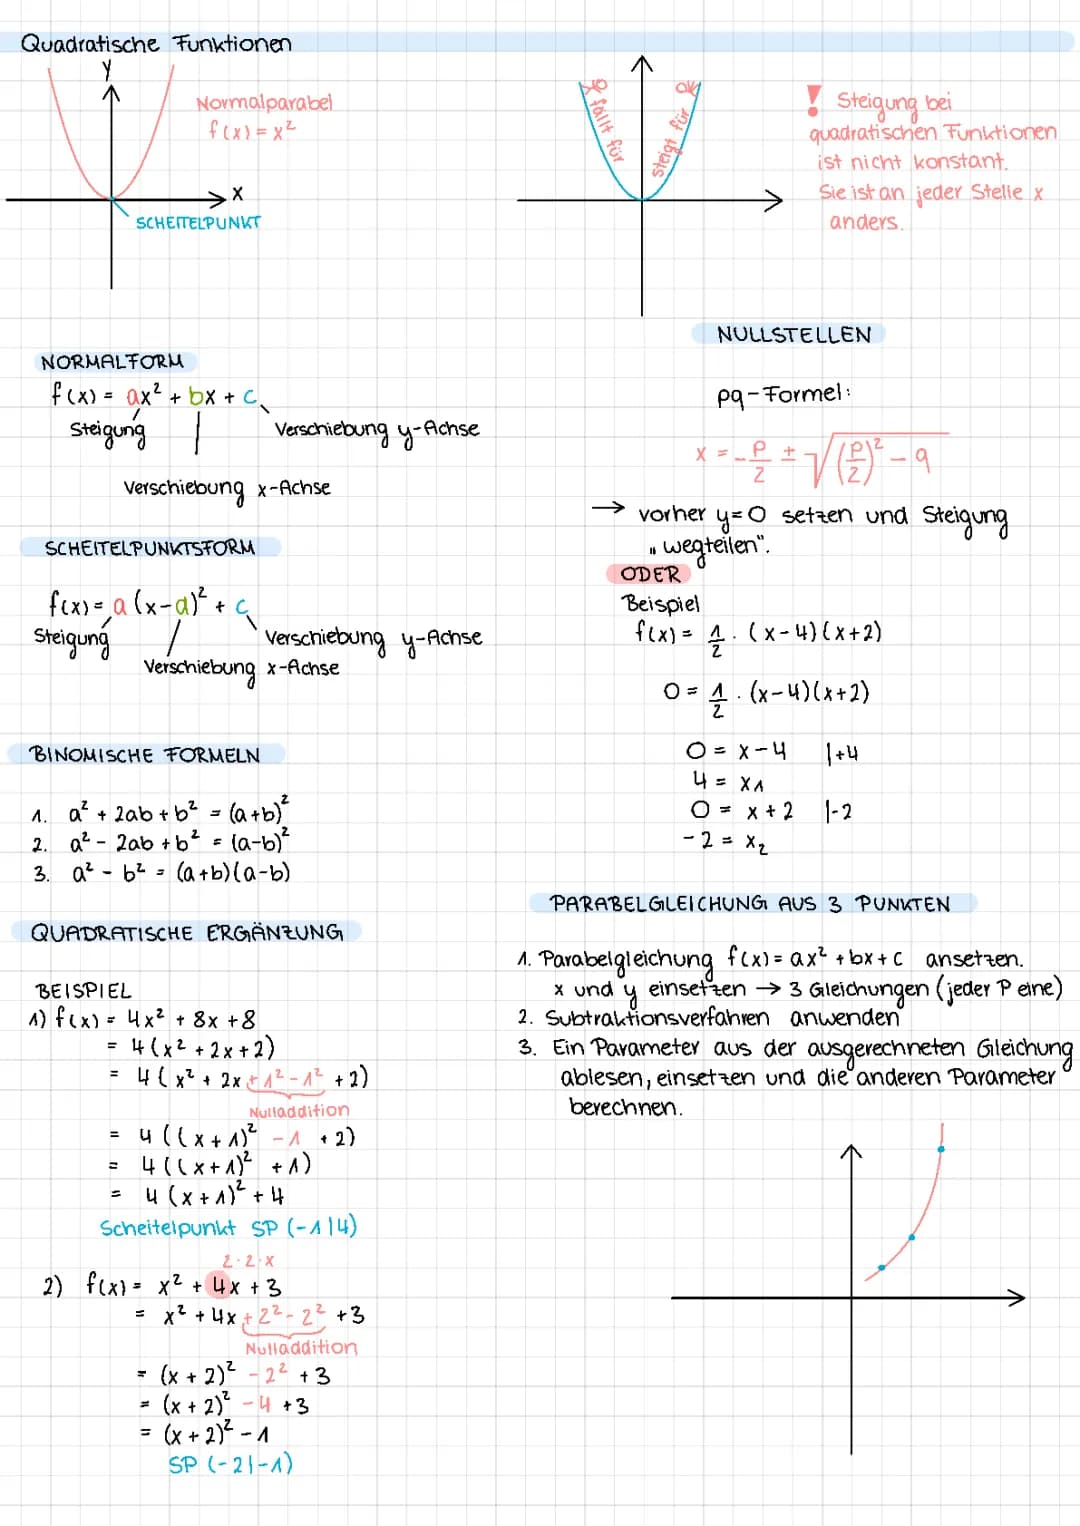 Quadratische Funktionen
y
Normalparabel
f(x) = x²
x
SCHEITELPUNKT
fällt für
steigt für
! Steigung bei
quadratischen Funktionen
ist nicht konstant.
Sie ist an jeder Stelle x
anders.
NORMALFORM
f(x) = ax² + bx + c
Steigung
Verschiebung y-Achse
Verschiebung x-Achse
SCHEITELPUNKTSFORM
f(x) = a (x-d)² + c
Steigung
Verschiebung y-Achse
Verschiebung x-Achse
BINOMISCHE FORMELN
1. a² + 2ab + b² = (a+b)²
2. a² - 2ab + b² = (a-b)²
3. a² - b² = (a+b)(a-b)
QUADRATISCHE ERGÄNZUNG
BEISPIEL
1) f(x) = 4x² + 8x + 8
= 4(x² + 2x + 2)
= 4(x² + 2x + 1² - 1² + 2)
Nulladdition
= 4((x + 1)² - 1 + 2)
= 4((x+1)² + 1)
= 4(x+1)² + 4
Scheitelpunkt SP (-1|4)
2·2·x
2) f(x) = x² + 4x + 3
= x² + 4x + 2² - 2² + 3
Nulladdition
= (x + 2)² - 2² + 3
= (x + 2)² - 4 + 3
= (x + 2)² - 1
SP (-2|-1)
NULLSTELLEN
pq-Formel:
x = -p/2 ± √((p/2)² - q
→ vorher y=0 setzen und Steigung
„wegteilen".
ODER
Beispiel
f(x) = 1/2 · (x-4)(x+2)
0 = 1/2 · (x-4)(x+2)
0 = x-4 |+4
4 = x₁
0 = x + 2 |-2
-2 = x₂
PARABELGLEICHUNG AUS 3 PUNKTEN
1. Parabelgleichung f(x) = ax² + bx + c ansetzen.
x und y einsetzen → 3 Gleichungen (jeder P eine)
2. Subtraktionsverfahren anwenden
3. Ein Parameter aus der ausgerechneten Gleichung
ablesen, einsetzen und die anderen Parameter
berechnen.